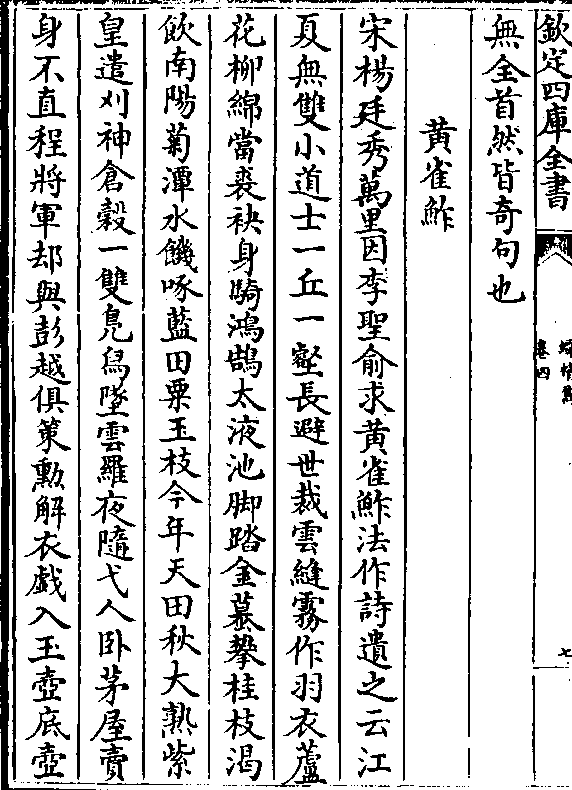 欽定四庫全書
卷四
七
無全首然皆奇句也
黄雀鮓
宋楊廷秀萬里因李聖俞求黄雀鮓法作詩遺之云江
夏無雙小道士一丘一壑長避世裁雲縫霧作羽衣蘆
花柳綿當裘袂身騎鴻鵠太液池脚踏金蟇攀桂枝渇
飲南陽菊潭水饑啄藍田粟玉枝今年天田秋大熟紫
皇遣刈神倉穀一雙鳬舄墜雲羅夜隨弋人卧茅屋賣
身不直程將軍却與彭越俱策勲解衣戯入玉壺底壺